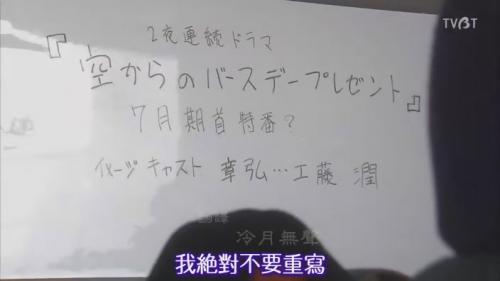 TVBT
2夜連続ドラマ
『空からのバースデープレゼント』
7月期首特番?
イメージキャスト 章弘…工藤 潤
冷月無聲
我絕對不要重寫